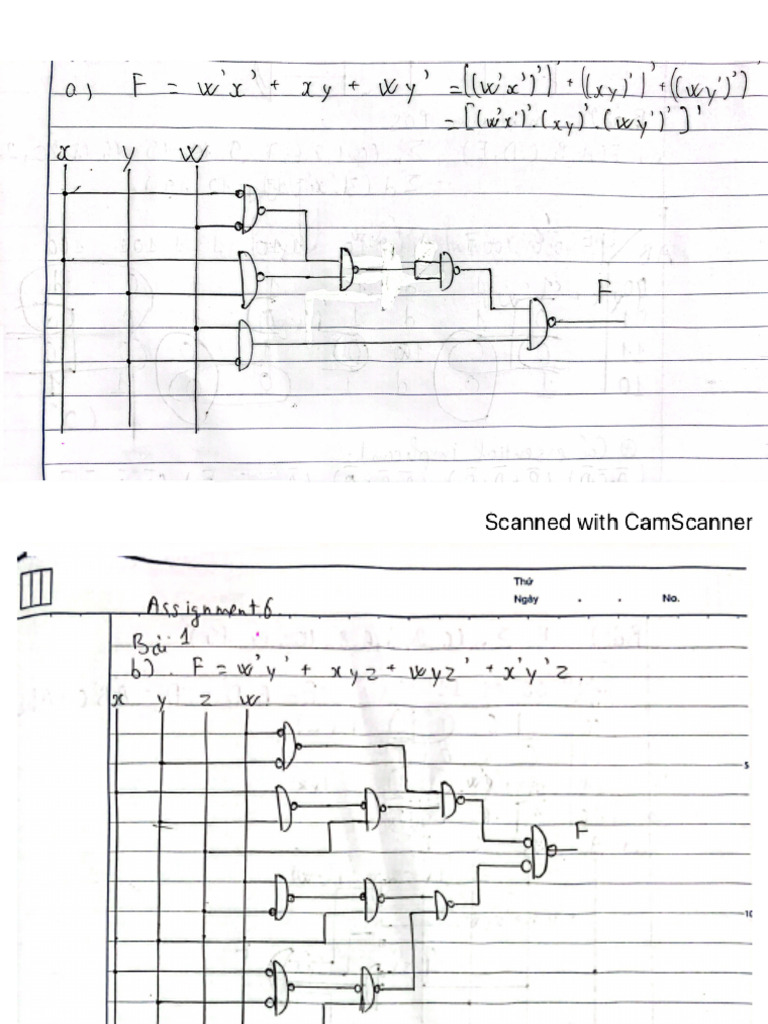 a) F = w'x' + xy + wy' = [(w'x')']' + [(xy)']' + [(wy')']'
= [(w'x')'.(xy)'.(wy')']'
x y w
F
Scanned with CamScanner
Thứ
Ngày . . No.
Assignment 6.
Bài 1
b) F = w'y' + xyz + wyz' + x'y'z.
x y z w
5
F
10